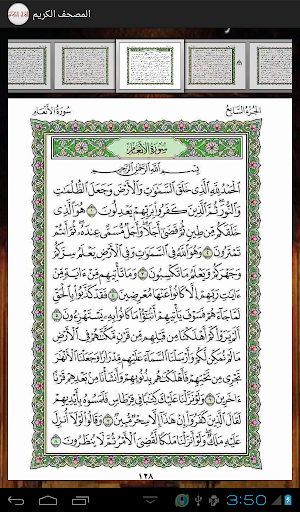 المصحف الكريم
سورة الأنعام
الجزء السابع
سُورَةُ الأَنْعَامِ
بِسْمِ اللَّهِ الرَّحْمَٰنِ الرَّحِيمِ
الْحَمْدُ لِلَّهِ الَّذِي خَلَقَ السَّمَٰوَٰتِ وَالْأَرْضَ وَجَعَلَ الظُّلُمَٰتِ
وَالنُّورَ ثُمَّ الَّذِينَ كَفَرُوا بِرَبِّهِمْ يَعْدِلُونَ ١ هُوَ الَّذِي
خَلَقَكُم مِّن طِينٍ ثُمَّ قَضَىٰ أَجَلًا وَأَجَلٌ مُّسَمًّى عِندَهُ ثُمَّ أَنتُمْ
تَمْتَرُونَ ٢ وَهُوَ اللَّهُ فِي السَّمَٰوَٰتِ وَفِي الْأَرْضِ يَعْلَمُ سِرَّكُمْ
وَجَهْرَكُمْ وَيَعْلَمُ مَا تَكْسِبُونَ ٣ وَمَا تَأْتِيهِم مِّنْ ءَايَةٍ مِّنْ
ءَايَٰتِ رَبِّهِمْ إِلَّا كَانُوا عَنْهَا مُعْرِضِينَ ٤ فَقَدْ كَذَّبُوا بِالْحَقِّ
لَمَّا جَاءَهُمْ فَسَوْفَ يَأْتِيهِمْ أَنبَٰٓؤُا مَا كَانُوا بِهِ يَسْتَهْزِءُونَ ٥
أَلَمْ يَرَوْا كَمْ أَهْلَكْنَا مِن قَبْلِهِم مِّن قَرْنٍ مَّكَّنَّٰهُمْ فِي الْأَرْضِ
مَا لَمْ نُمَكِّن لَّكُمْ وَأَرْسَلْنَا السَّمَاءَ عَلَيْهِم مِّدْرَارًا وَجَعَلْنَا الْأَنْهَٰرَ
تَجْرِي مِن تَحْتِهِمْ فَأَهْلَكْنَٰهُم بِذُنُوبِهِمْ وَأَنشَأْنَا مِن بَعْدِهِمْ قَرْنًا
ءَاخَرِينَ ٦ وَلَوْ نَزَّلْنَا عَلَيْكَ كِتَٰبًا فِي قِرْطَاسٍ فَلَمَسُوهُ بِأَيْدِيهِمْ
لَقَالَ الَّذِينَ كَفَرُوا إِنْ هَٰذَا إِلَّا سِحْرٌ مُّبِينٌ ٧ وَقَالُوا لَوْلَا أُنزِلَ
عَلَيْهِ مَلَكٌ وَلَوْ أَنزَلْنَا مَلَكًا لَّقُضِيَ الْأَمْرُ ثُمَّ لَا يُنظَرُونَ ٨
١٢٨
3:50